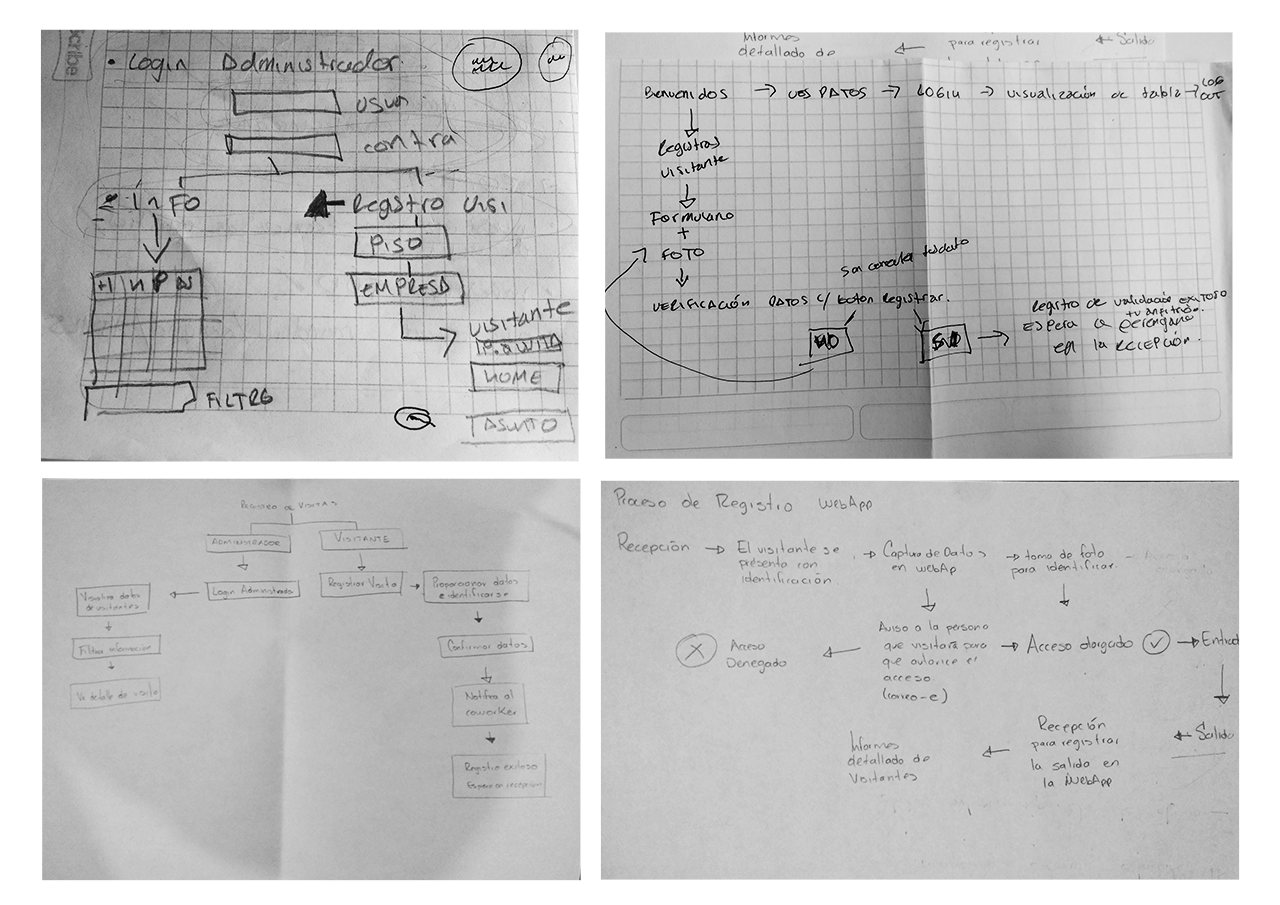 cribe
• Login Administrador
usua
contra
info
Registro Visi
Piso
EMPRESA
visitante
NOME
ASUNTO
+1 N P N
FILTRO
Informes
detallado de
para registrar
Salida
Bienvenidos → VES DATOS → LOGIN → Visualización de tabla → LOG OUT
Registras
visitante
Formulario
+
FOTO
Son correctos tus datos
VERIFICACIÓN DATOS C/ botón Registrar.
NO
SI
Registro de validación exitoso
tu anfitrión
ESPERA a
en la RECEPCIÓN.
REGISTRO DE VISITAS
ADMINISTRADOR
VISITANTE
Login Administrador
Registrar Visita
Proporcionar datos
e identificarse
Visualiza datos
de visitantes
Filtra información
Ve detalle de visita
Confirmar datos
Notifica al
coworker
Registro exitoso
Espera en recepción
Proceso de Registro WebApp
Recepción → El visitante se
presenta con
identificación.
→ Captura de Datos
en WebAp
→ toma de foto
para identificar.
Acceso
Denegado
Aviso a la persona
que visitará para
que autorice el
acceso
(correo-e)
→ Acceso otorgado
→ Entrad
Salida
Recepción
para registrar
la salida en
la WebApp
Informes
detallado de
Visitantes